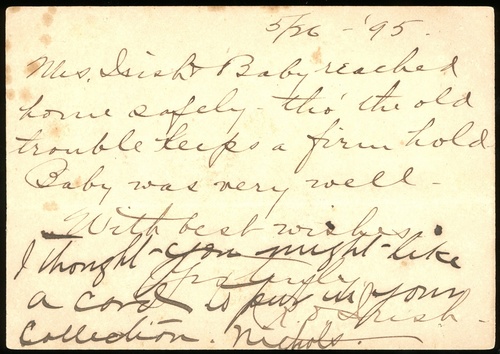 5/26 - '95.
Mrs. Irish & Baby reached
home safely - tho' the old
trouble keeps a firm hold
Baby was very well -
With best wishes
I thought you might like
a card to put in your
Irish -
collection. Nichols.